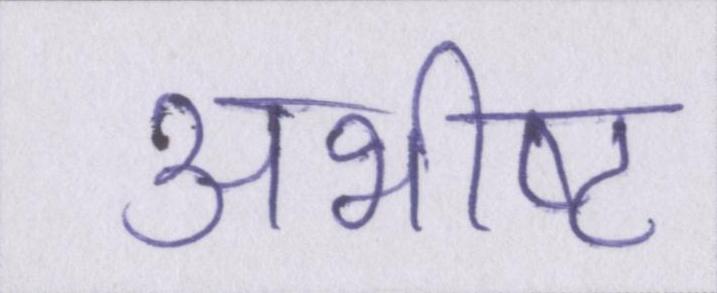 अभीष्ट